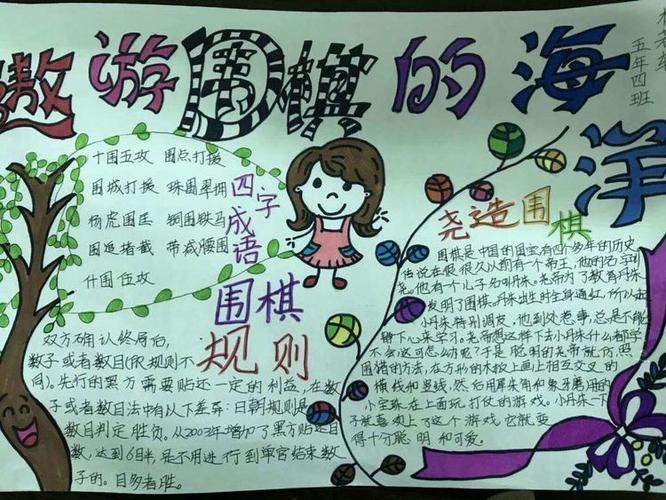 遨游围棋的海洋
五年四班
十围五攻 围点打援
围城打援 珠围翠拥
杨虎围匡 铜围铁马
围追堵截 带减腰围
什围伍攻
四字成语
围棋规则
双方确认终局后,
数子或者数目(所规则不
同)。先行的黑方需要贴还一定的利益,在数
子或者数目法中有以下差异:日朝规则是
数目判定胜负。从2003年增加了黑方贴还目
数,达到6目半,是不用进行到单官结束数
子的。目多者胜。
尧造围棋
围棋是中国的国宝,有四千多年的历史
传说在很很久以前有一个帝王,他的名字叫
尧。他有一个儿子名叫丹朱。尧帝为了教育丹朱
发明了围棋。丹朱出生时全身通红,所以起
小丹朱特别调皮,他到处惹事,总是不能
静下心来学习。尧帝想这样下去小丹朱什么都学
不会这可怎么办呢?于是聪明的尧帝就仿照
围猎的方法,在方形的木板上画上相互交叉的
横线和竖线,然后用犀牛角和象牙磨用的
小宝珠在上面玩打仗的游戏。小丹朱一下
子就喜欢上了这个游戏它就变
得十分聪明和可爱。